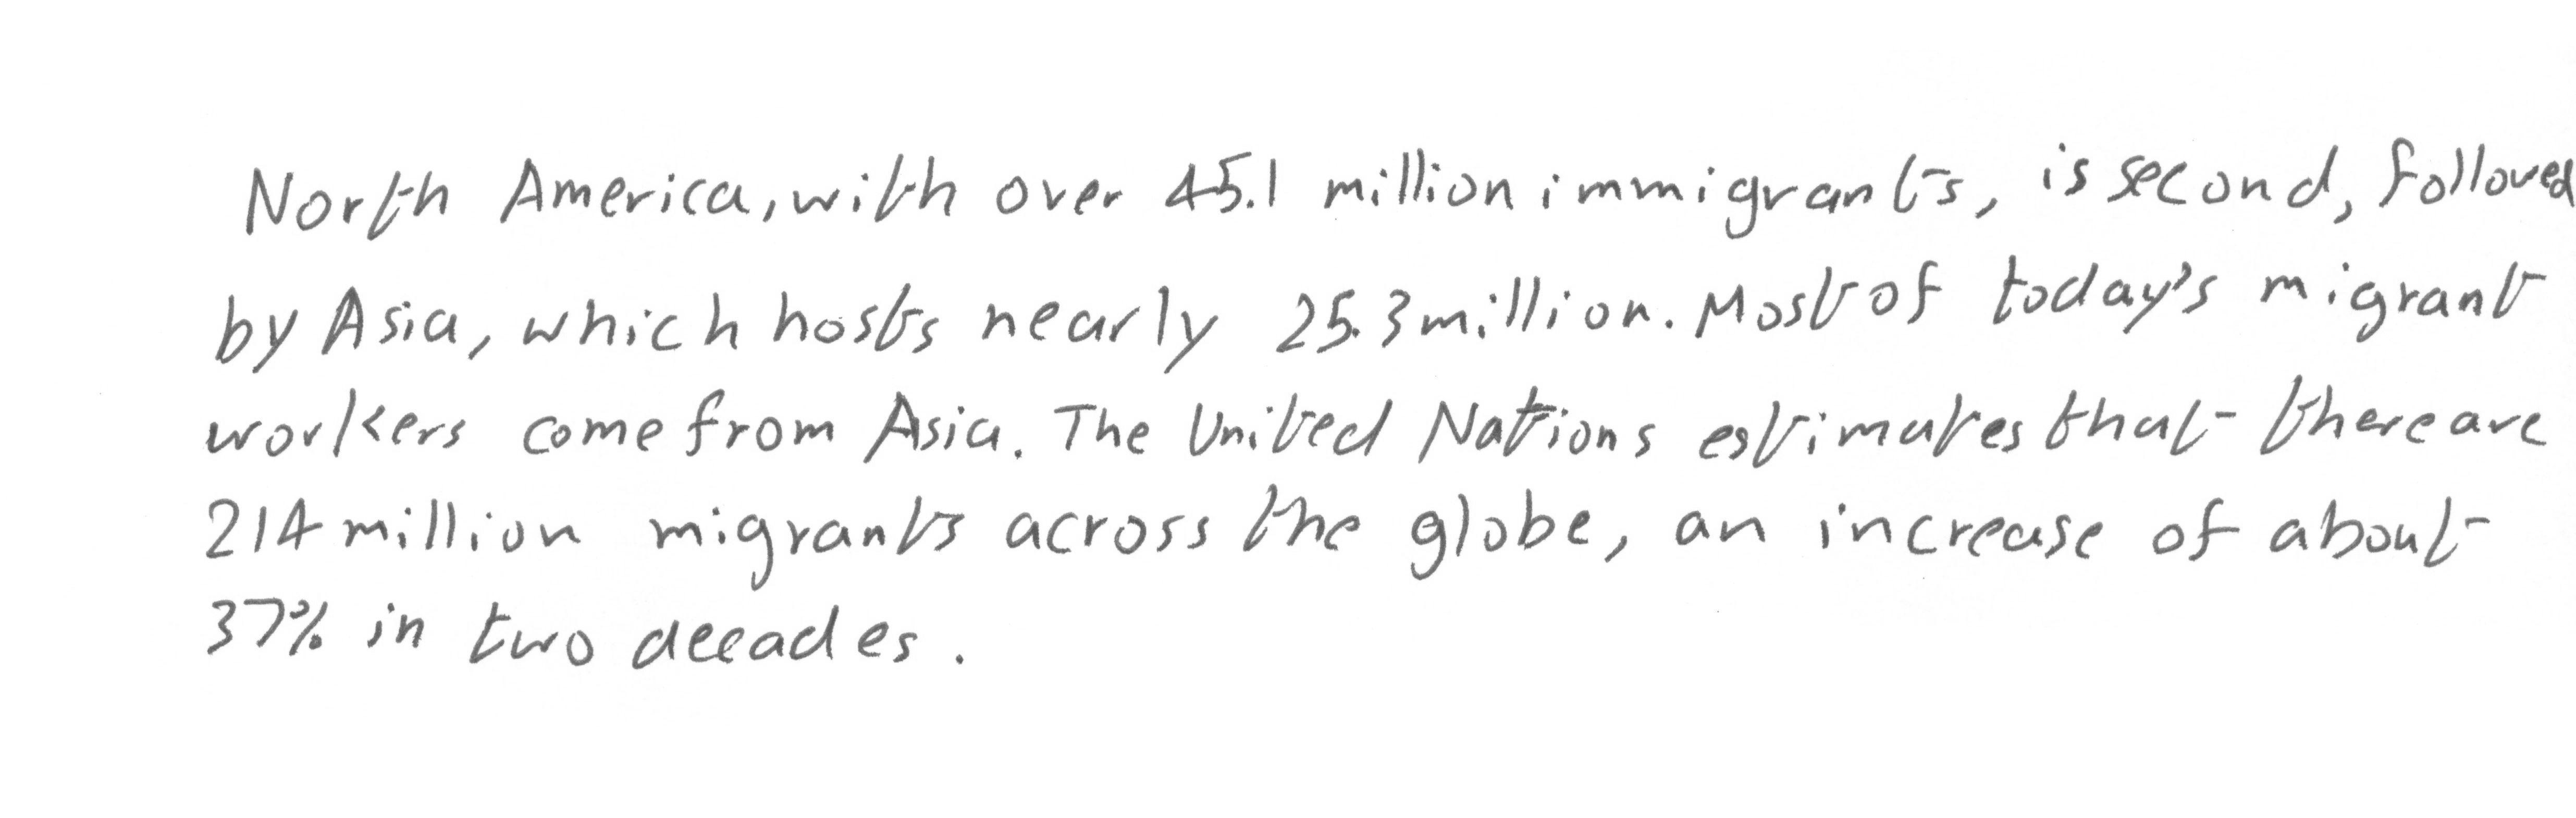 North America, with over 45.1 million immigrants, is second, followed
by Asia, which hosts nearly 25.3 million. Most of today's migrant
workers come from Asia. The United Nations estimates that there are
214 million migrants across the globe, an increase of about
37% in two decades.